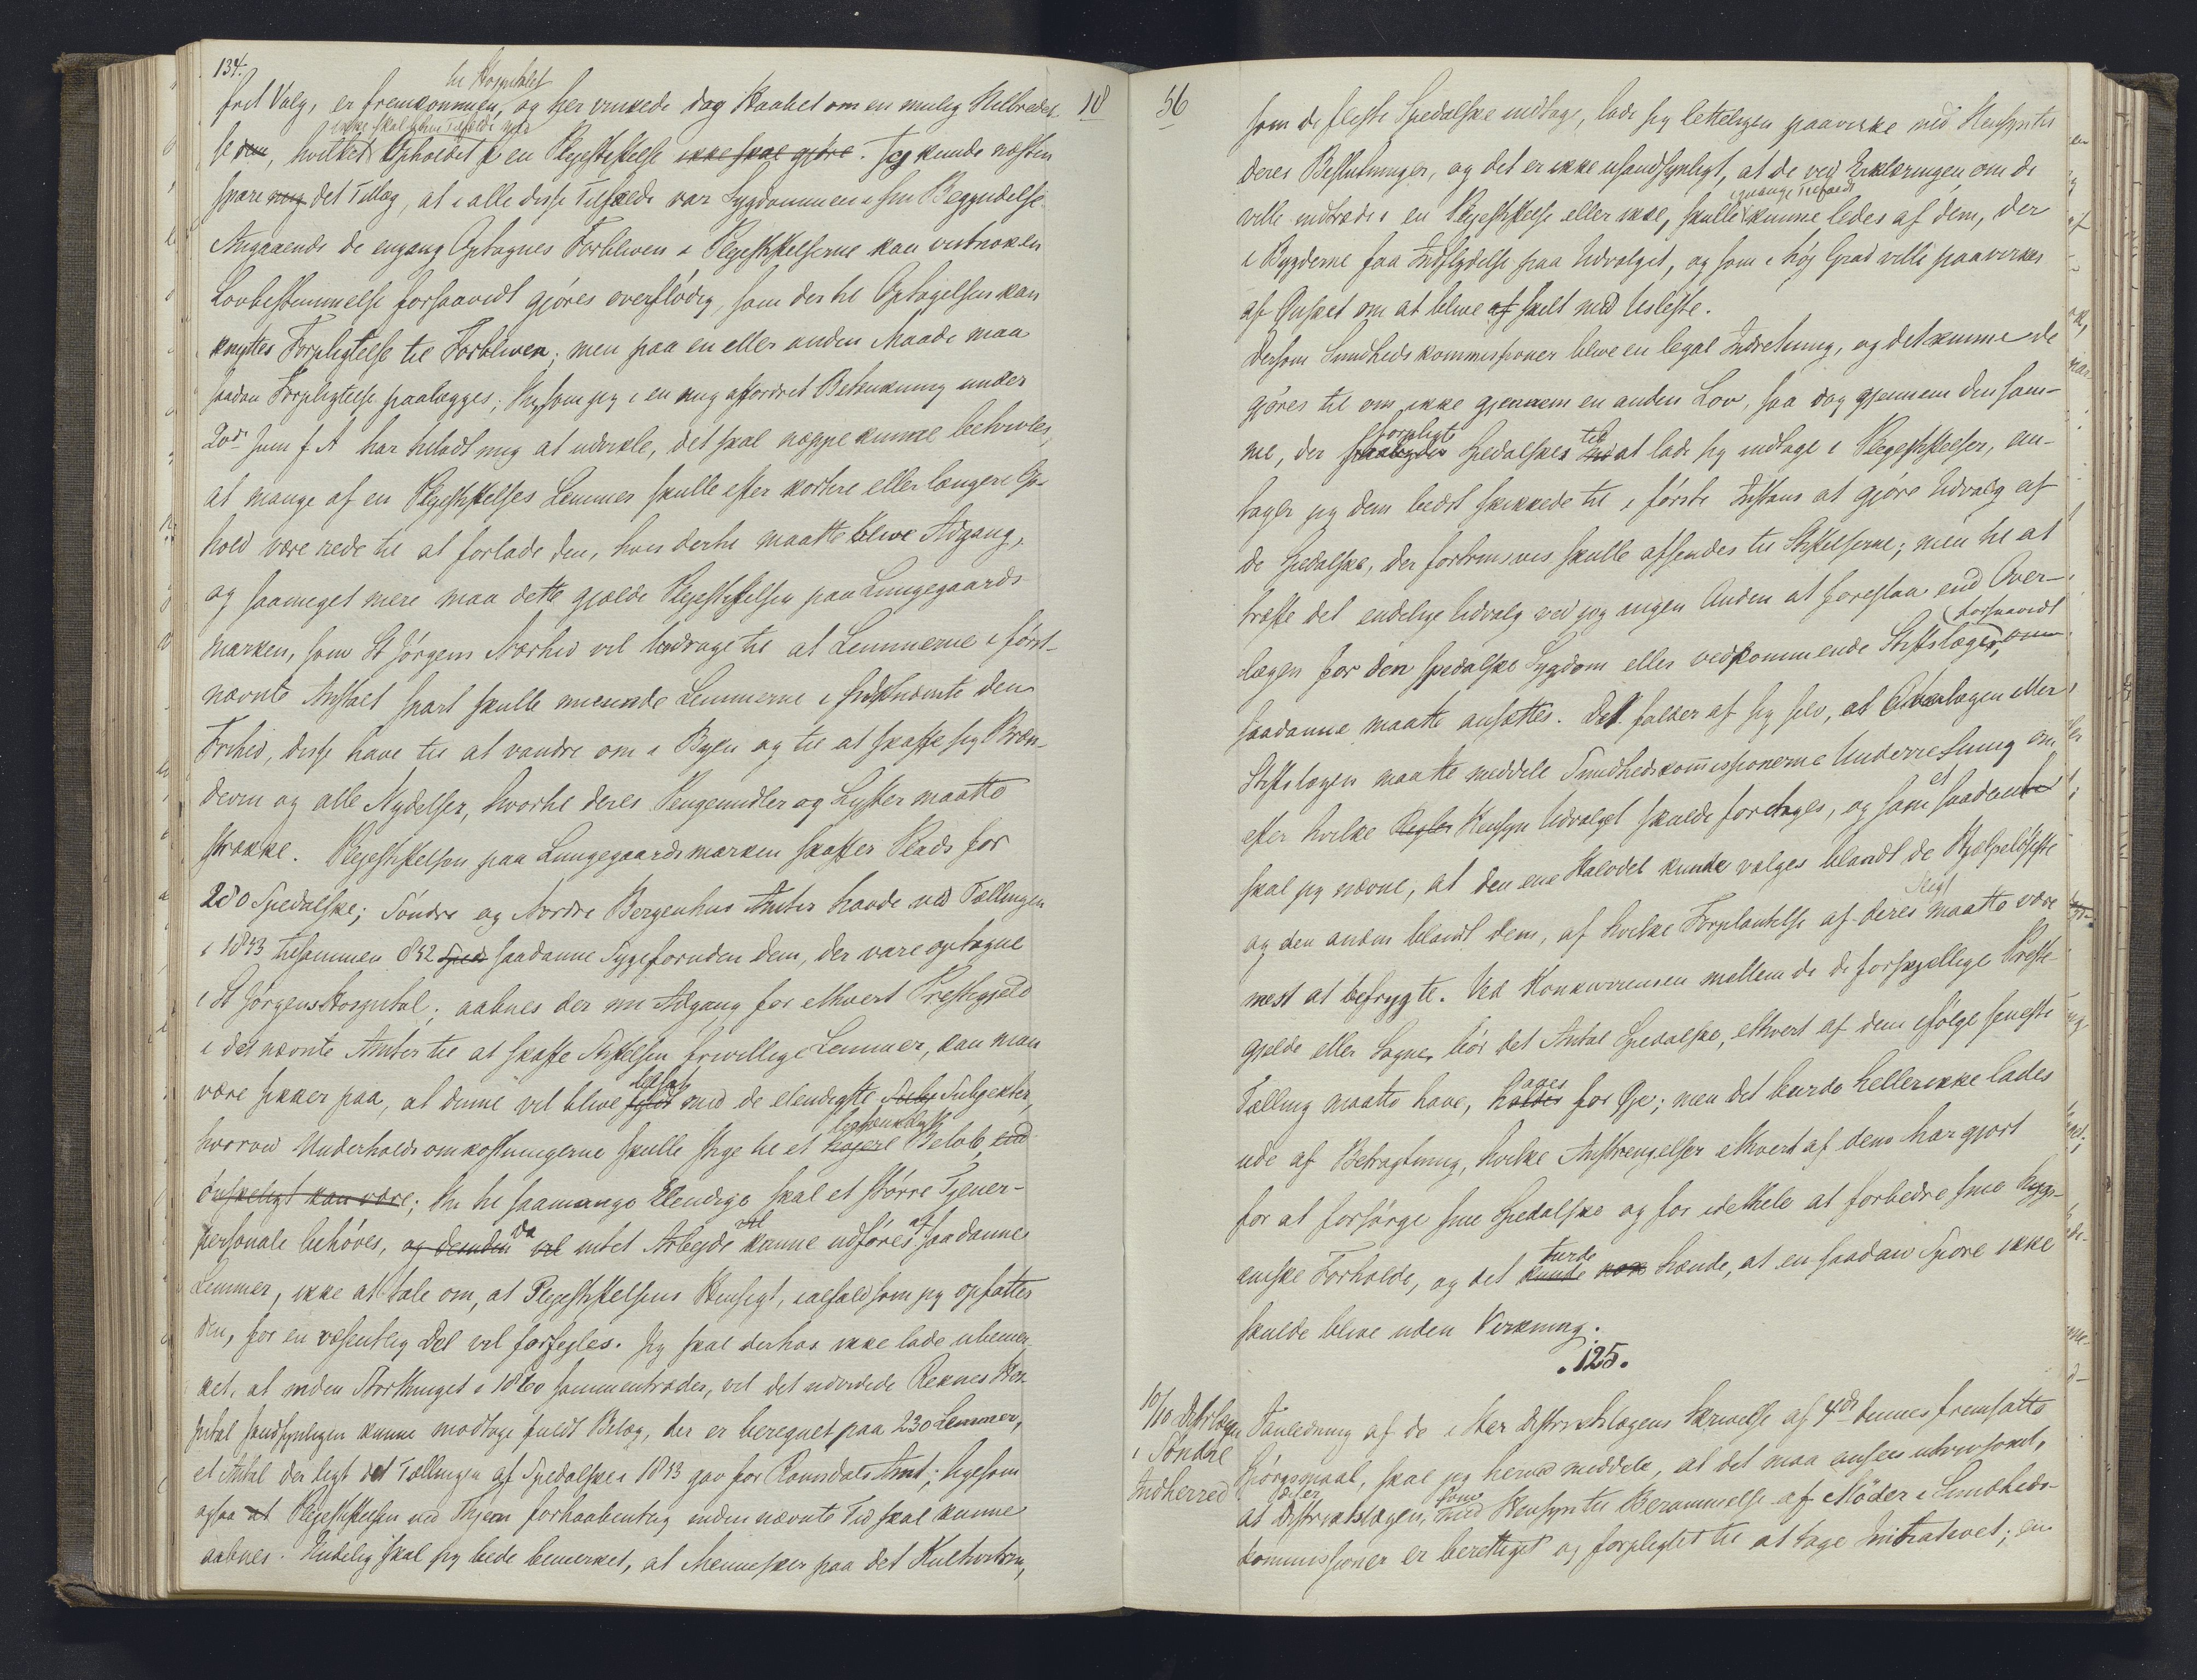 134.
til Hospitalet
frit Valg, er fremkommen, og her vinkede dog Haabet om en mulig Helbredel-
ikke skal blive Tilfældet ved
se den, hvilket Opholdet i en Plejestiftelse ikke skal gjøre. Jeg kunde næsten
spare mig det Tillæg, at i alle disse Tilfælde var Sygdommen i sin Begyndelse.
Angaaende de engang Optagnes Forbliven i Plejestiftelserne kan vistnok en
Lovbestemmelse forsaavidt gjøres overflødig, som der til Optagelsen kan
knyttes Forpligtelse til Forbliven; men paa en eller anden Maade maa
saadan Forpligtelse paalægges; thi som jeg i en mig affordret Betænkning under
20de Juni f. A. har tilladt mig at udvikle, det skal neppe kunne betvivles,
at mange af en Plejestiftelses Lemmer skulle efter kortere eller længere Op-
hold være rede til at forlade den, hvis dertil maatte blive Adgang,
og saameget mere maa dette gjælde Plejestiftelsen paa Lungegaards
marken, som St Jørgens Nærhed vil bidrage til at Lemmerne i først-
nævnte Anstalt snart skulle misunde Lemmerne i sidstnævnte den
Frihed, disse have til at vandre om i Byen og til at skaffe sig Bræn-
deviin og alle Nydelser, hvortil deres Pengemidler og Lyster maatte
strække. Plejestiftelsen paa Lungegaardsmarken skaffer Plads for
280 Spedalske; Søndre og Nordre Bergenhus Amter havde ved Tællingen
i 1853 tilsammen 832 Sped saadanne Syge foruden dem, der vare optagne
i St Jørgens Hospital; aabnes der nu Adgang for ethvert Præstegjeld
i det nævnte Amter til at skaffe Stiftelsen frivillige Lemmer, kan man
belagt
være sikker paa, at denne vil blive fyldt med de elendigste Suby Subjekter,
betænkeligt
hvorved Underholdsomkostningerne skulle stige til et højere Beløb, end
ønskeligt kan være; thi til saamange Elendige skal et større Tjener-
da af
personale behøves, og desuden vil intet Arbejde kunne udføres saadanne
Lemmer, ikke at tale om, at Plejestiftelsens Hensigt, ialfald som jeg opfatter
den, for en væsentlig Del vil forfejles. Jeg skal derhos ikke lade ubemær-
ket, at inden Storthinget i 1860 sammentræder, vil det udvidede Reknes Hos-
pital sandsynligen kunne modtage fuldt Belæg, der er beregnet paa 230 Lemmer,
et Antal der ligt det Tællingen af Spedalske i 1853 gav for Romsdals Amt; ligesom
ogsaa at Plejestiftelsen ved Thjem forhaabentlig inden nævnte Tid skal kunne
aabnes. Endelig skal jeg bede bemærket, at Mennesker paa det Kulturtrin,
18
56
som de fleste Spedalske indtage, lade sig letteligen paavirke med Hensyn til
deres Beslutninger, og det er ikke usandsynligt, at de ved Erklæringen om de
i mange Tilfælde
ville indtræde i en Plejestiftelse eller ikke, skulle kunne ledes af dem, der
i Bygderne faa Indflydelse paa Udvalget, og som i høj Grad ville paavirkes
af Ønsket om at blive af skilt med Usleste.
Dersom Sundhedskommissioner blive en legal Indretning, og det kunne de
gjøres til om ikke gjennem en anden Lov, saa dog gjennem den sam-
forpligter til
me, der paabyder Spedalskes ind at lade sig indtage i Plejestiftelser, an-
tager jeg dem bedst skikkede til i første Instans at gjøre Udvalg af
de Spedalske, der fortrinsvis skulle afsendes til Stiftelserne; men til at
træffe det endelige Udvalg ved jeg ingen Anden at foreslaa end Over-
forsaavidt
lægen for den spedalske Sygdom eller vedkommende Stiftslæger, om
saadanne maatte ansættes. Det falder af sig selv, at Overlægen eller
Stiftslægen maatte meddele Sundhedskommissionerne Underretning om,
et
efter hvilke Regler Hensyn Udvalget skulde foretages, og som saadant
skal jeg nævne, at den ene Halvdel kunde vælges blandt de Hjælpeløseste
Slegt
og den anden blandt dem, af hvilke Forplantelse af deres maatte være
mest at befrygte. Ved Konkurrencen mellem de de forskjellige Præste-
gjelde eller Sogne, bør det Antal Spedalske, ethvert af dem ifølge seneste
haves
Tælling maatte have, holdes for Øje; men det burde heller ikke lades
ude af Betragtning, hvilke Anstrengelser ethvert af dem har gjort
for at forsørge sine Spedalske og for idethele at forbedre sine hygi-
turde
æniske Forholde, og det kunde nok hænde, at en saadan Spore ikke
skulde blive uden Virkning.
125.
10/10 Distr.lægen i Søndre Indherred
I Anledning af de i Hr Distriktslægens Skrivelse af 4de dennes fremsatte
Spørgsmaal, skal jeg herved meddele, at det maa ansees utvivlsomt,
det er som
at Distriktslægen, med Hensyn til Berammelse af Møder i Sundheds-
kommissioner er berettiget og forpligtet til at tage Initiativet; en